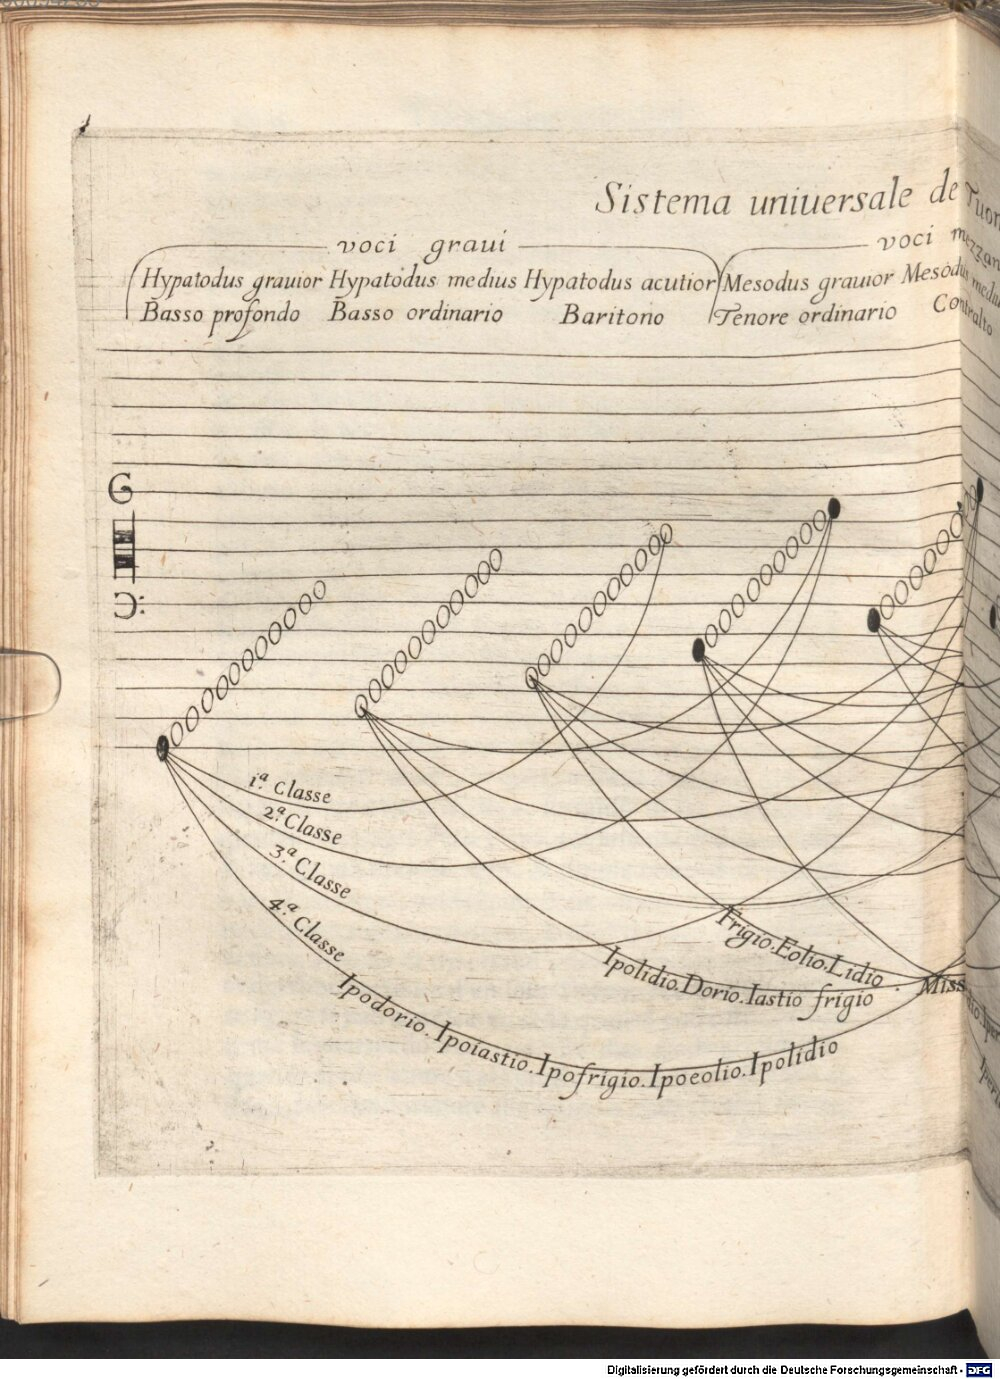 Sistema uniuersale de Tuon
voci graui
voci mezzan
Hypatodus grauior Hypatodus medius Hypatodus acutior Mesodus grauior Mesodus medius
Basso profondo Basso ordinario Baritono Tenore ordinario Contralto
G
1.ª Classe
2.ª Classe
3.ª Classe
4.ª Classe
Frigio. Eolio. Lidio.
Ipolidio. Dorio. Iastio frigio
Miss
Ipodorio. Ipoiastio. Ipofrigio. Ipoeolio. Ipolidio
Digitalisierung gefördert durch die Deutsche Forschungsgemeinschaft - DFG